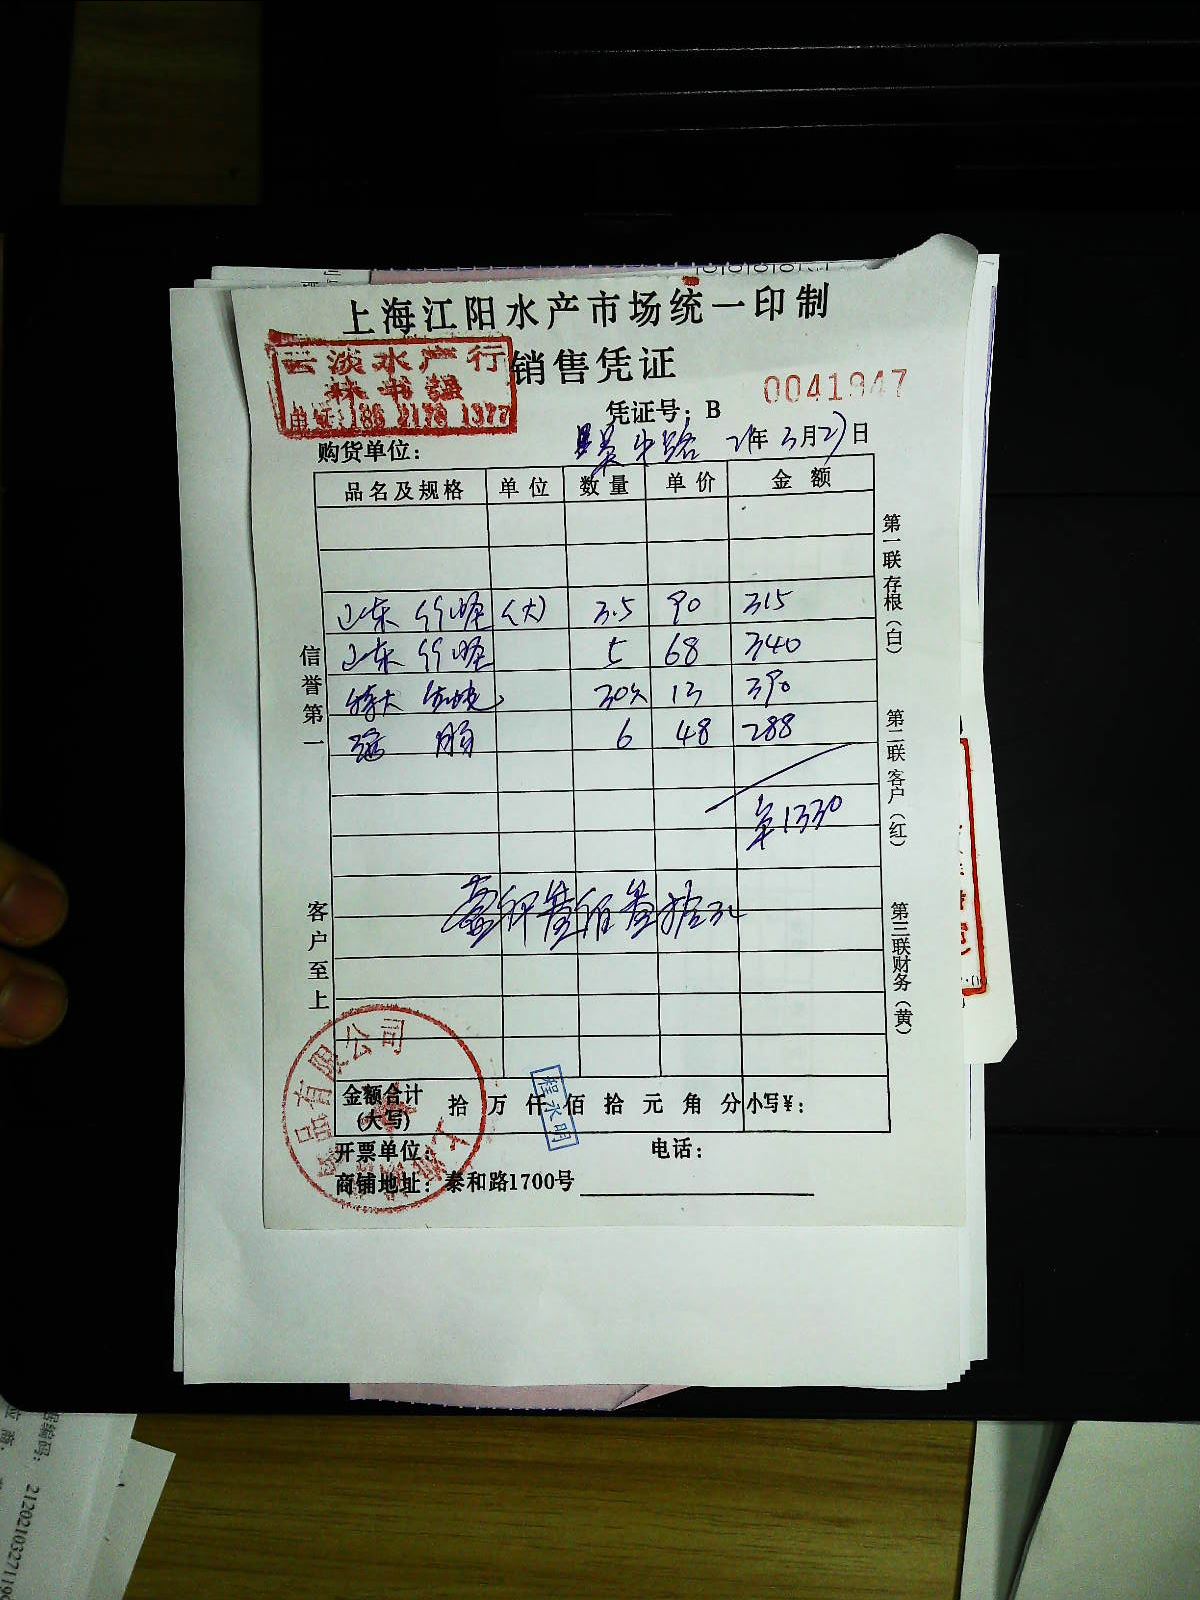 上海江阳水产市场统一印制
云淡水产行
林书强
电话:186 2179 1377
销售凭证
凭证号:B 0041947
购货单位: 21年 3月27日
品名及规格 单位 数量 单价 金额
山东竹蛏(大) 3.5 90 315
山东竹蛏 5 68 340
特大 30只 13 390
6 48 288
¥1330
信誉第一
客户至上
第一联存根(白)
第二联客户(红)
第三联财务(黄)
金额合计(大写) 拾 万 仟 佰 拾 元 角 分 小写¥:
程永明
开票单位: 电话:
商铺地址:泰和路1700号
品有限公司
2120210327119